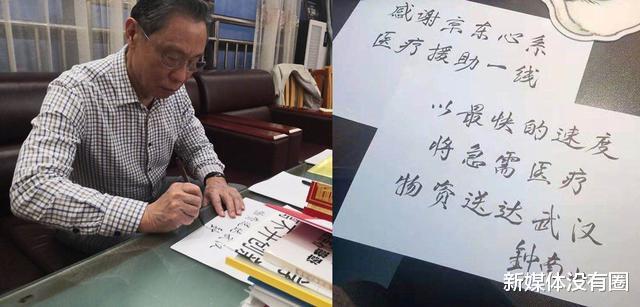 感谢京东心系
医疗援助一线
以最快的速度
将急需医疗
物资送达武汉
钟南
新媒体没有圈